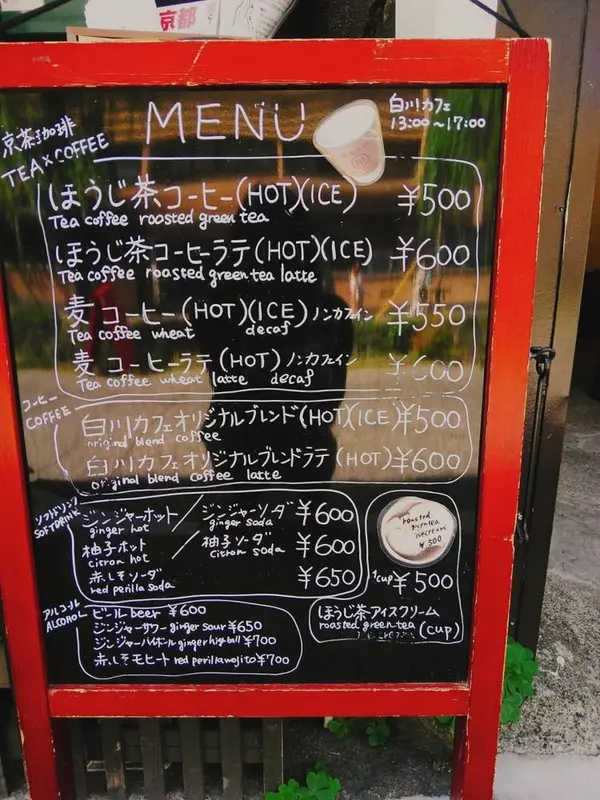 京都
MENU
白川カフェ
13:00~17:00
京茶珈琲
TEA×COFFEE
ほうじ茶コーヒー(HOT)(ICE) ¥500
Tea coffee roasted green tea
ほうじ茶コーヒーラテ(HOT)(ICE) ¥600
Tea coffee roasted green tea latte
麦コーヒー(HOT)(ICE)ノンカフェイン ¥550
Tea coffee wheat decaf
麦コーヒーラテ(HOT)ノンカフェイン ¥600
Tea coffee wheat latte decaf
コーヒー
COFFEE
白川カフェオリジナルブレンド(HOT)(ICE)¥500
original blend coffee
白川カフェオリジナルブレンドラテ(HOT)¥600
original blend coffee latte
ソフトドリンク
SOFTDRINK
ジンジャーホット/ジンジャーソーダ ¥600
ginger hot ginger soda
柚子ホット/柚子ソーダ ¥600
citron hot citron soda
赤しそソーダ ¥650
red perilla soda
roasted
green tea
icecream
¥500
1cup ¥500
ほうじ茶アイスクリーム
roasted green tea (cup)
アルコール
ALCOHOL
ビール beer ¥600
ジンジャーサワー ginger sour ¥650
ジンジャーハイボール ginger highball ¥700
赤しそモヒート red perilla mojito ¥700